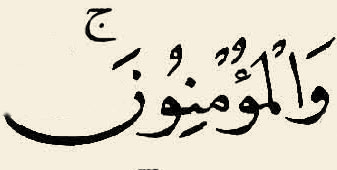 وَالْمُؤْمِنُونَ ۚ